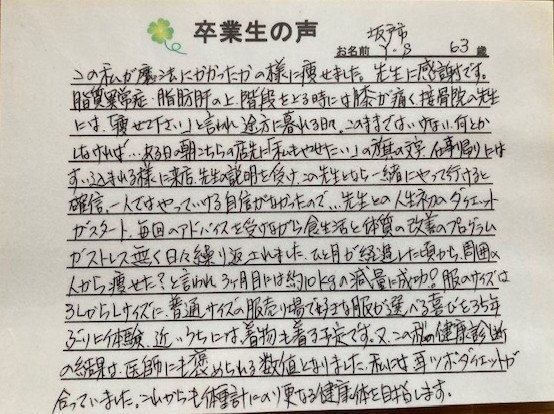 卒業生の声
坂戸市
お名前 Y・S 63歳
この私が魔法にかかったかの様に痩せました。先生に感謝です。
脂質異常症・脂肪肝の上、階段をとる時には膝が痛く接骨院の先生
には、「痩せて下さい」と言われ途方に暮れる日々。このままではいけない、何とか
しなければ…ある日の朝こちらの店先に「私もやせたい」の旗の文字、仕事帰りには
すい込まれる様に来店。先生の説明を受け、この先生となら一緒にやって行けると
確信。一人ではやっていける自信がなかったので…先生との人生初のダイエット
がスタート。毎回のアドバイスを受けながら食生活と体質の改善のプログラム
がストレス無く日々繰り返されました。ひと月が経過した頃から、周囲の
人から痩せた?と言われ、3ヶ月目には約10kgの減量に成功♡服のサイズは
3LからLサイズに、普通サイズの服売り場で好きな服が選べる喜びを35年
ぶりに体験、近いうちには、着物も着る予定です。又、この秋の健康診断
の結果は、医師にも褒められる数値となりました。私には耳ツボダイエットが
合っていました。これからも体重計にのり更なる健康体を目指します。